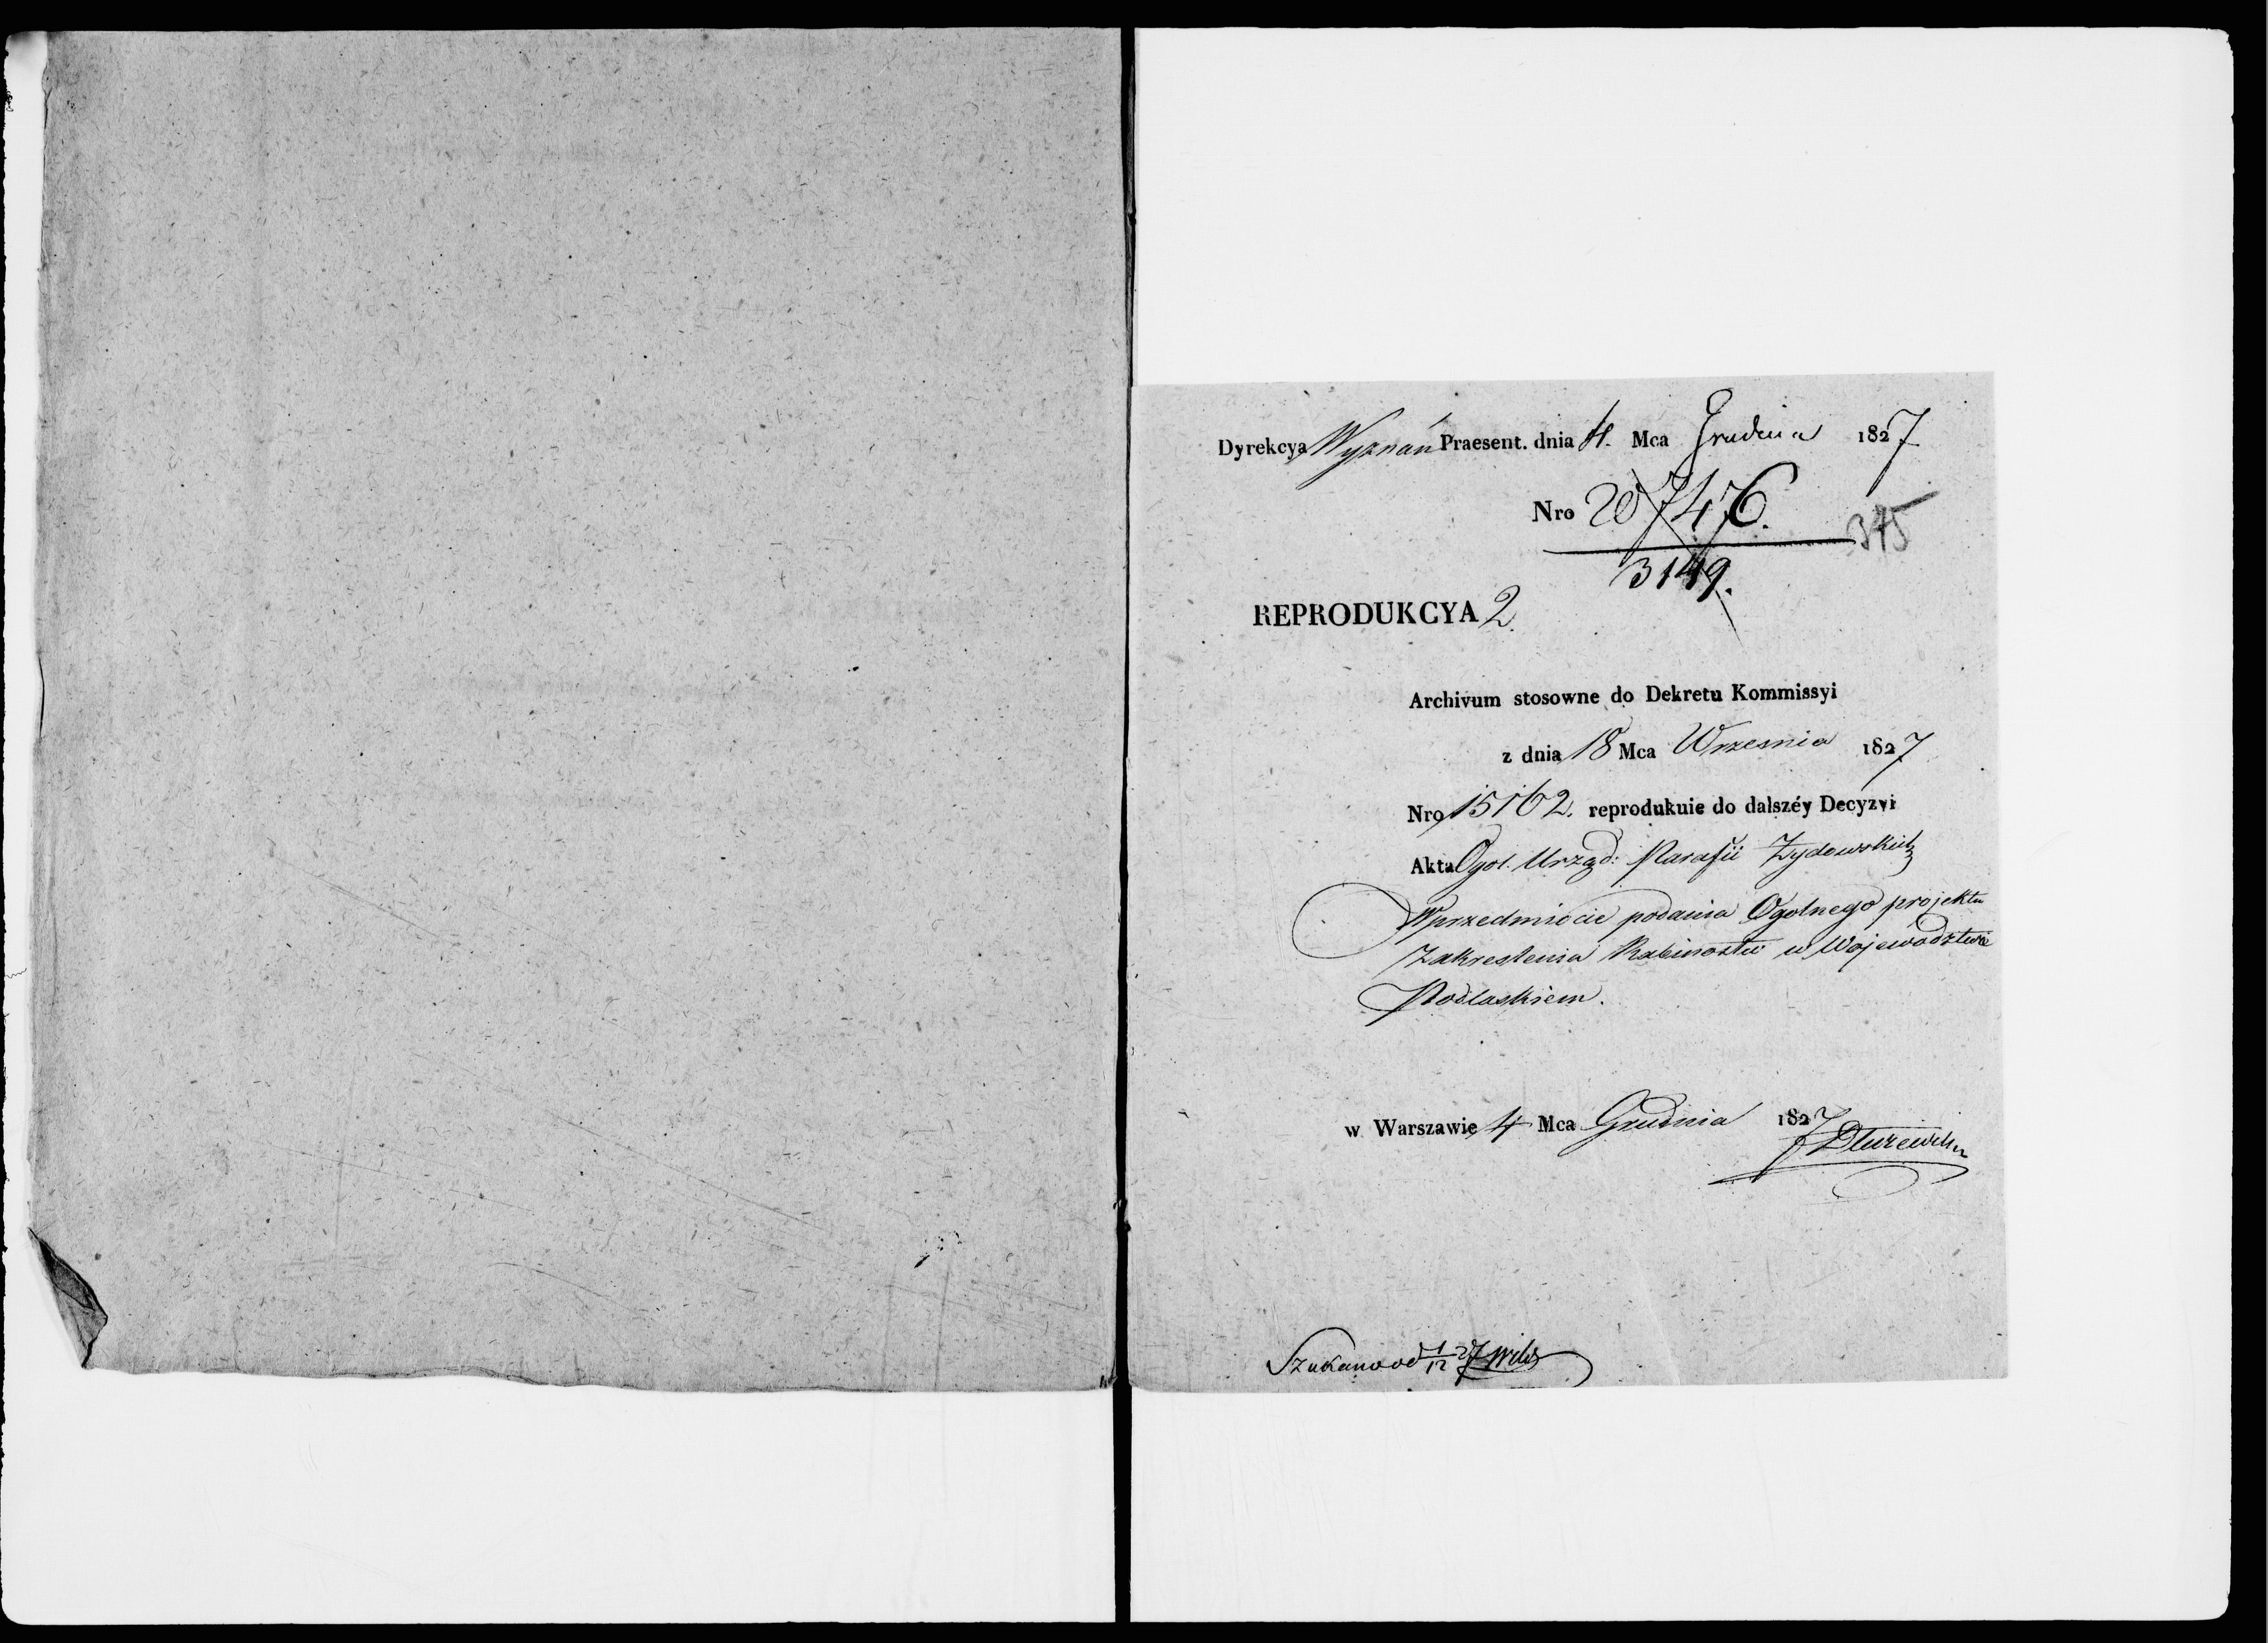 Dyrekcya Wyznań Praesent. dnia 4. Mca Grudnia 1827
Nro 20746.
375
3149.
REPRODUKCYA 2.
Archivum stosowne do Dekretu Kommissyi
z dnia 18 Mca Wrzesnia 1827
Nro 15162. reprodukuie do dalszéy Decyzyi
Akta Ogol. Urząd: Parafii Zydowskich
W przedmiocie podania Ogolnego projektu
Zakreslenia Rabinostw w Wojewodztwie
Podlaskiem.
w Warszawie 4 Mca Grudnia 1827
Szukano od 1/12 27